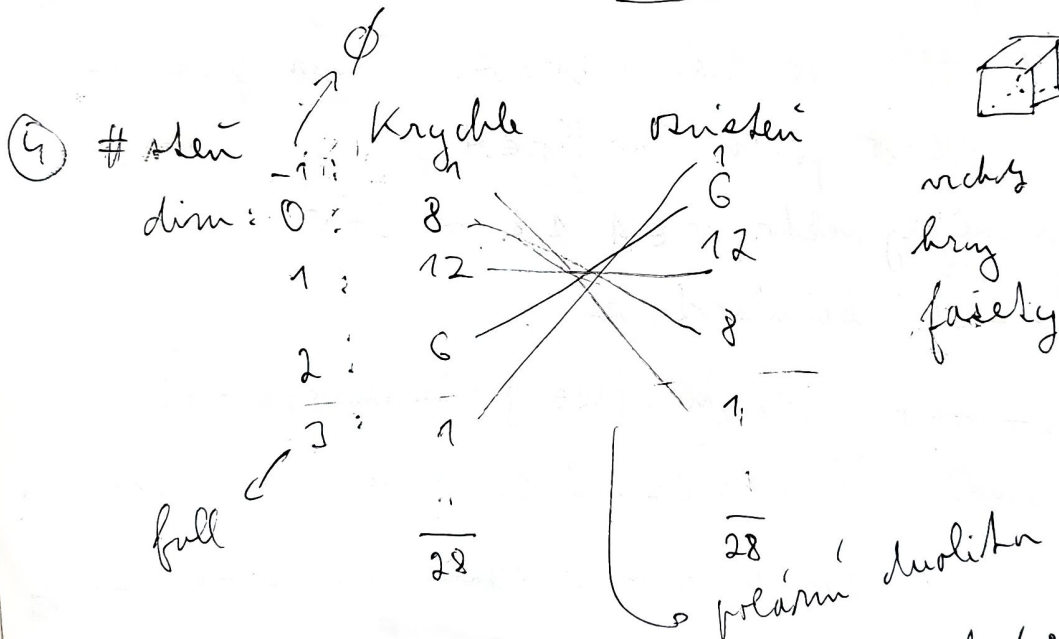 ∅
④ # stěn Krychle osmistěn
-1: 1 1
dim: 0: 8 6 vrcholy
1: 12 12 hrany
2: 6 8 fasety
3: 1 1
full 28 28
polární dualita